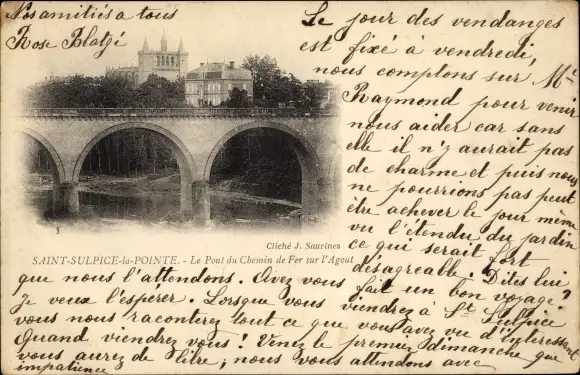 Nos amitiés à tous
Rose Blatgé
Le jour des vendanges
est fixé à vendredi,
nous comptons sur Mr
Raymond pour venir
nous aider car sans
elle il n'y aurait pas
de charme et puis nous
ne pourrions pas peut
être achever le jour même
vu l'étendu du jardin
ce qui serait fort
désagreable. Dites lui
que nous l'attendons. Avez vous fait un bon voyage?
Je veux l'espérer. Lorsque vous viendrez à St Sulpice
vous nous raconterez tout ce que vous avez vu d'interessant
Quand viendrez vous! Venez le premier dimanche que
vous aurez de libre, nous vous attendons avec
impatience
Cliché J. Saurines
SAINT-SULPICE-la-POINTE. - Le Pont du Chemin de Fer sur l'Agout